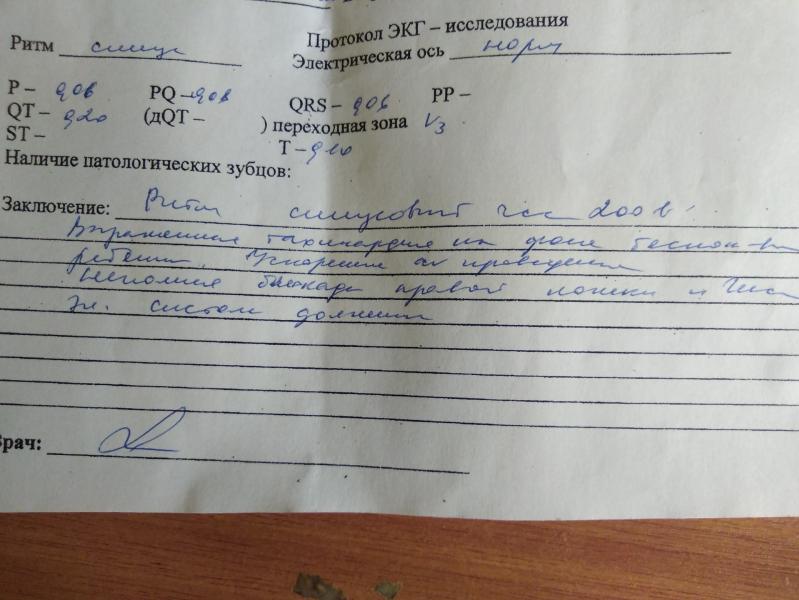 Протокол ЭКГ – исследования
Ритм синус Электрическая ось норм
P – 0,06 PQ – 0,08 QRS – 0,06 PP –
QT – 0,20 (дQT – ) переходная зона V3
ST – T – 0,10
Наличие патологических зубцов:
Заключение: Ритм синусовый чсс 200 в'
Выраженная тахикардия на фоне беспок-ва
ребенка. Ускорение ав проведения
Неполная блокада правой ножки п Гиса
Эл. систола
Врач: